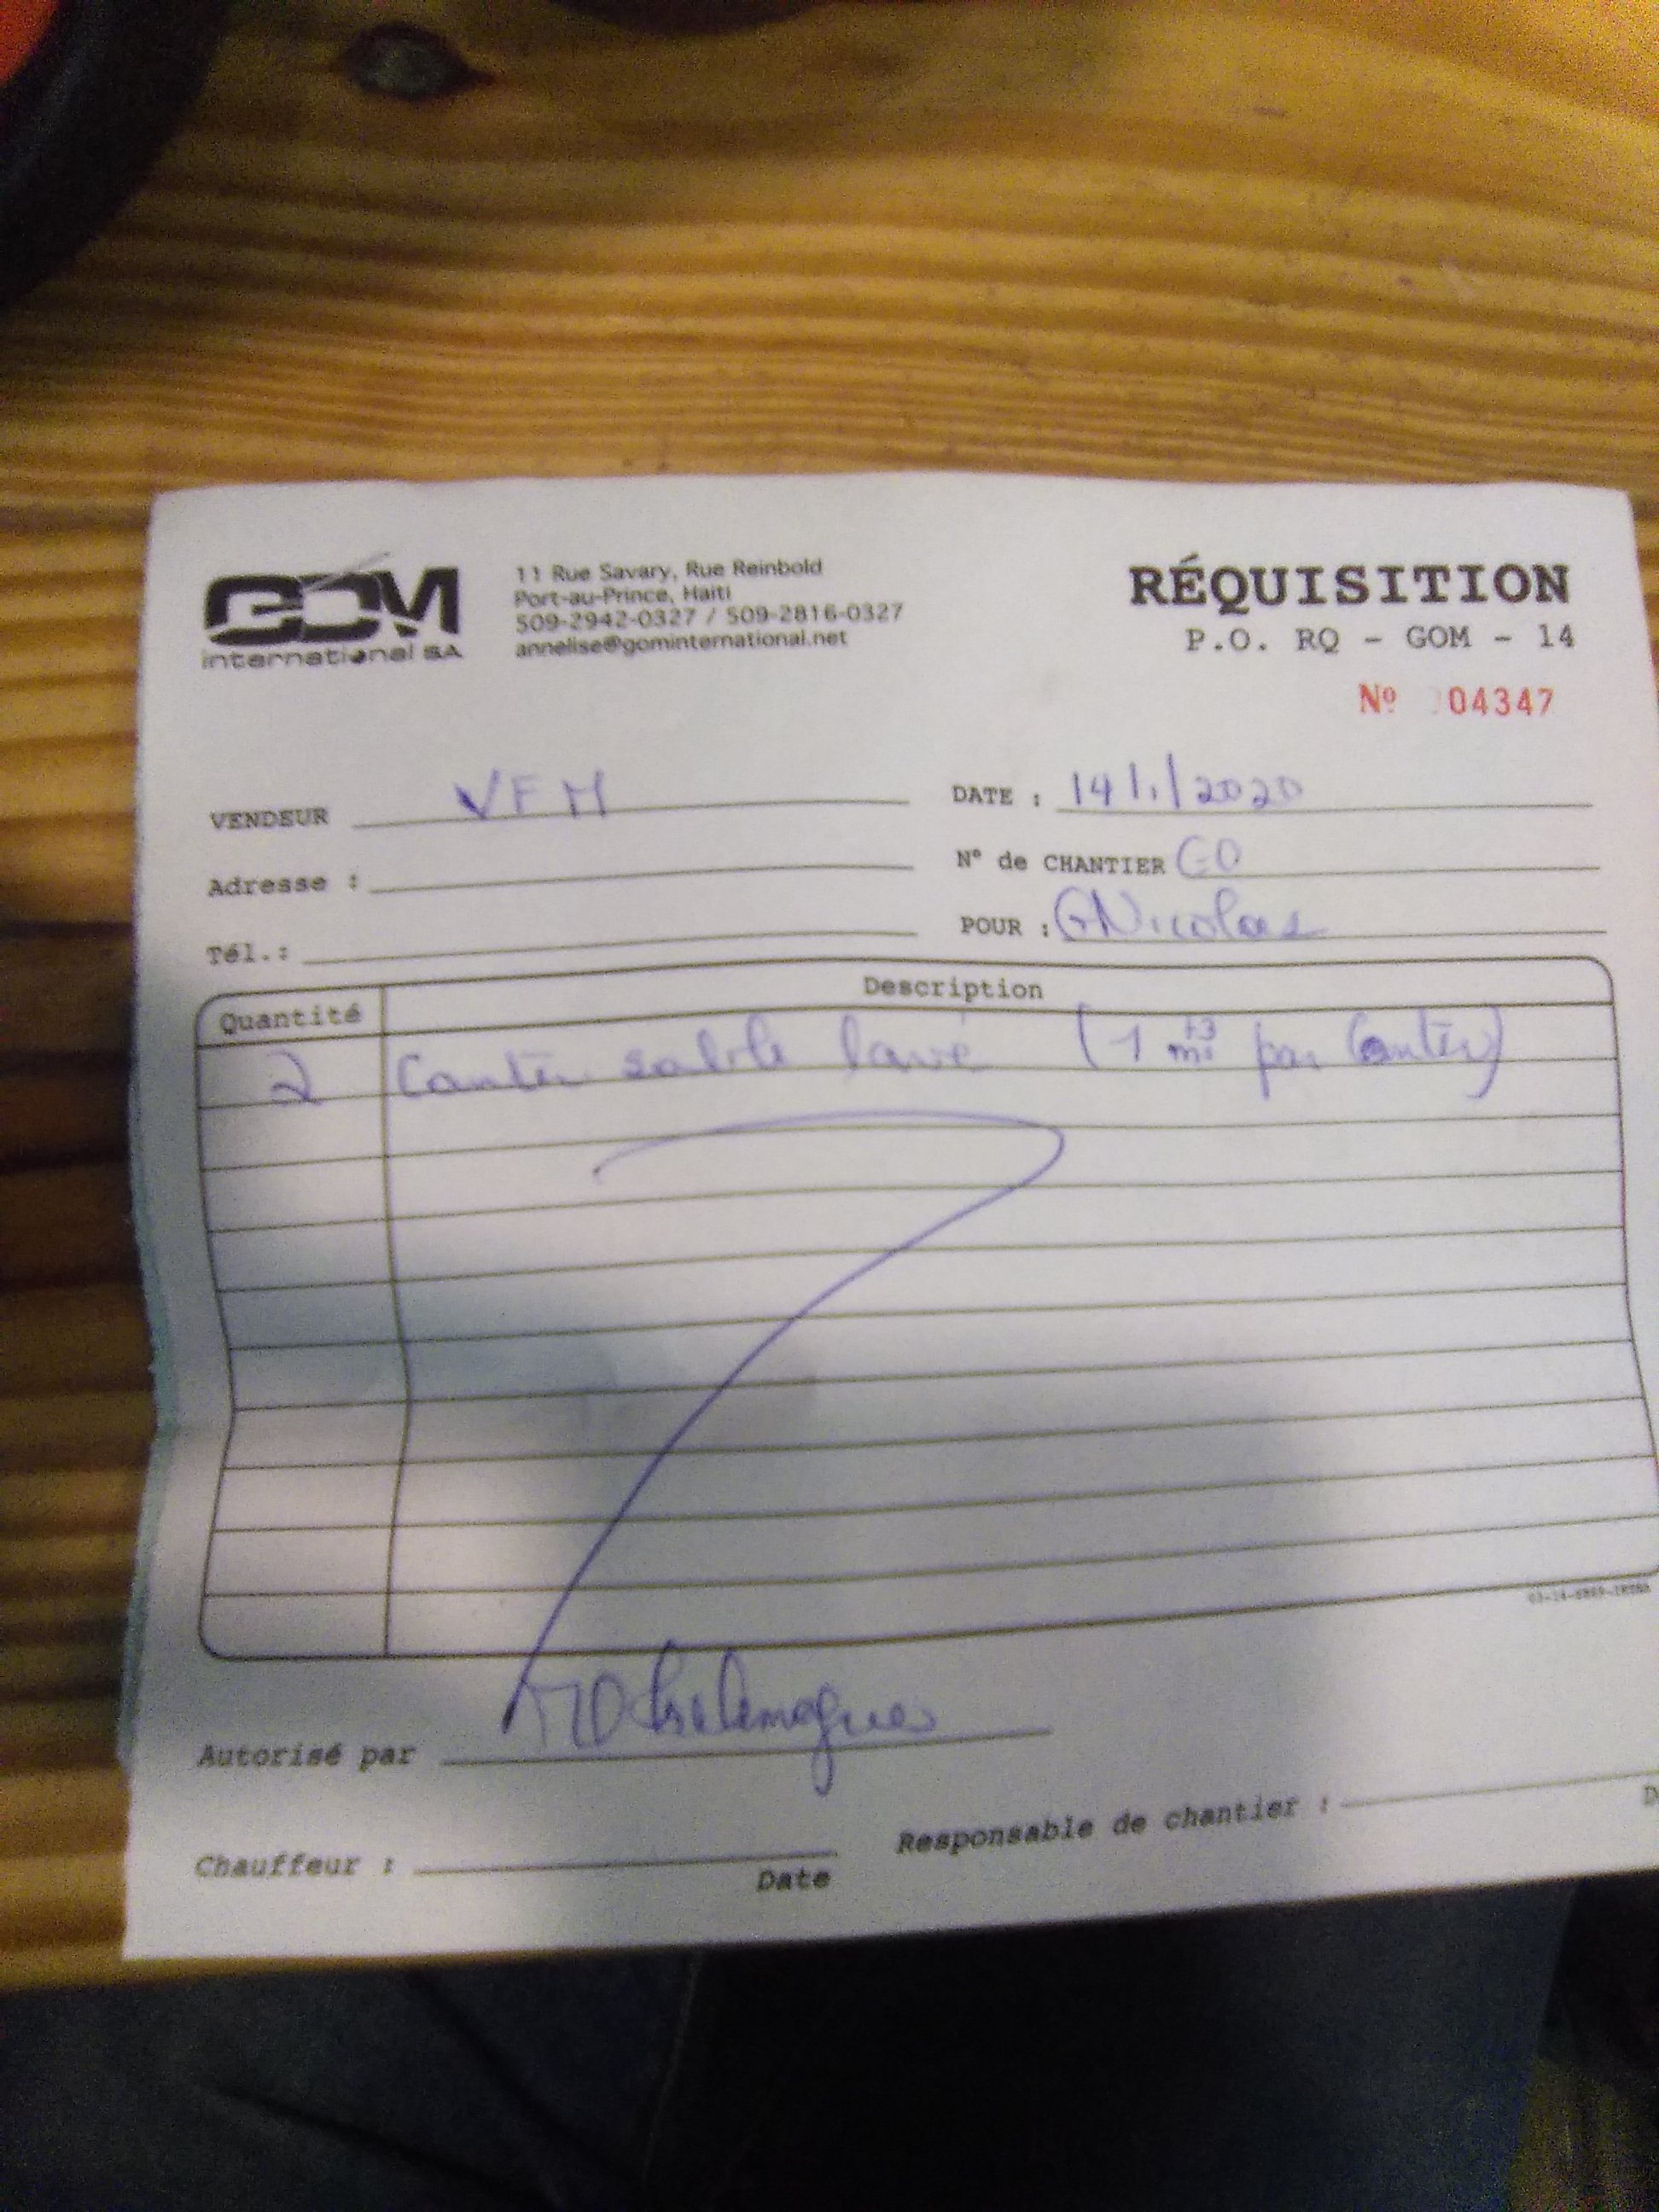 GOM
international SA
11 Rue Savary, Rue Reinbold
Port-au-Prince, Haiti
509-2942-0327 / 509-2816-0327
annelise@gominternational.net
RÉQUISITION
P.O. RQ - GOM - 14
Nº 04347
VENDEUR VFM
DATE : 14/1/2020
Adresse :
N° de CHANTIER GO
Tél.:
POUR : GNicolas
Quantité Description
2 Canter sable lavé (1 par Canter)
Autorisé par
Chauffeur :
Date
Responsable de chantier :